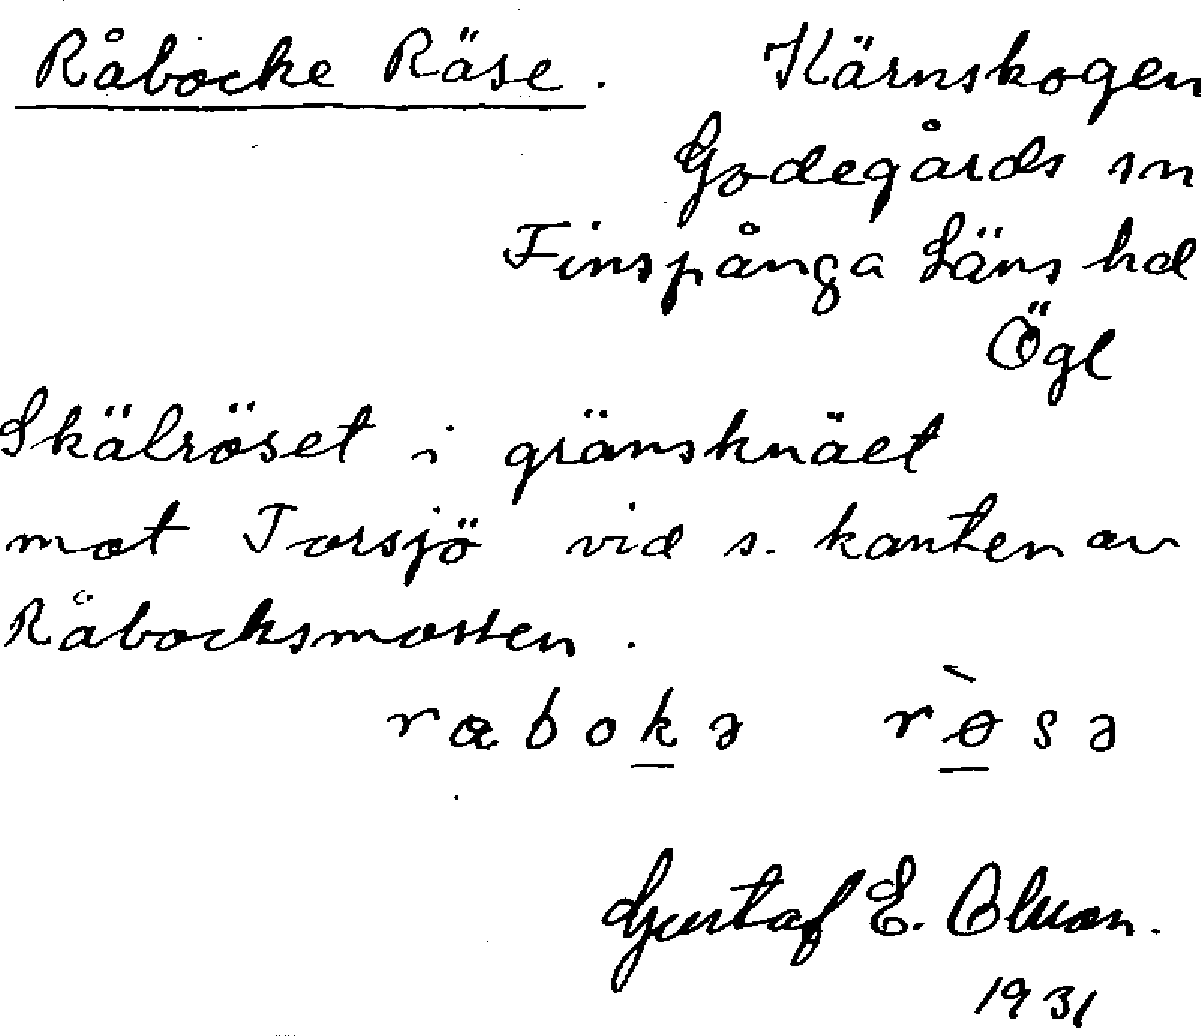 Råbocke Räse. Kärnskogen
Godegårds sn
Finspånga Läns hd
Ögl
Skälröset i gränsknäet
mot Torsjö vid s. kanten av
Råbocksmossen.
rabokə rø̀sə
Gustaf E. Olsson.
1931